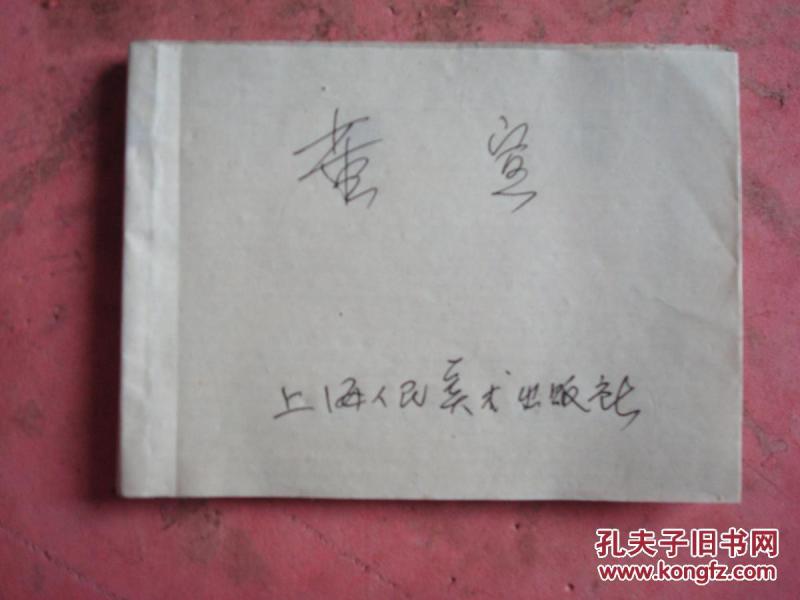 董宣
上海人民美术出版社
孔夫子旧书网
www.kongfz.com